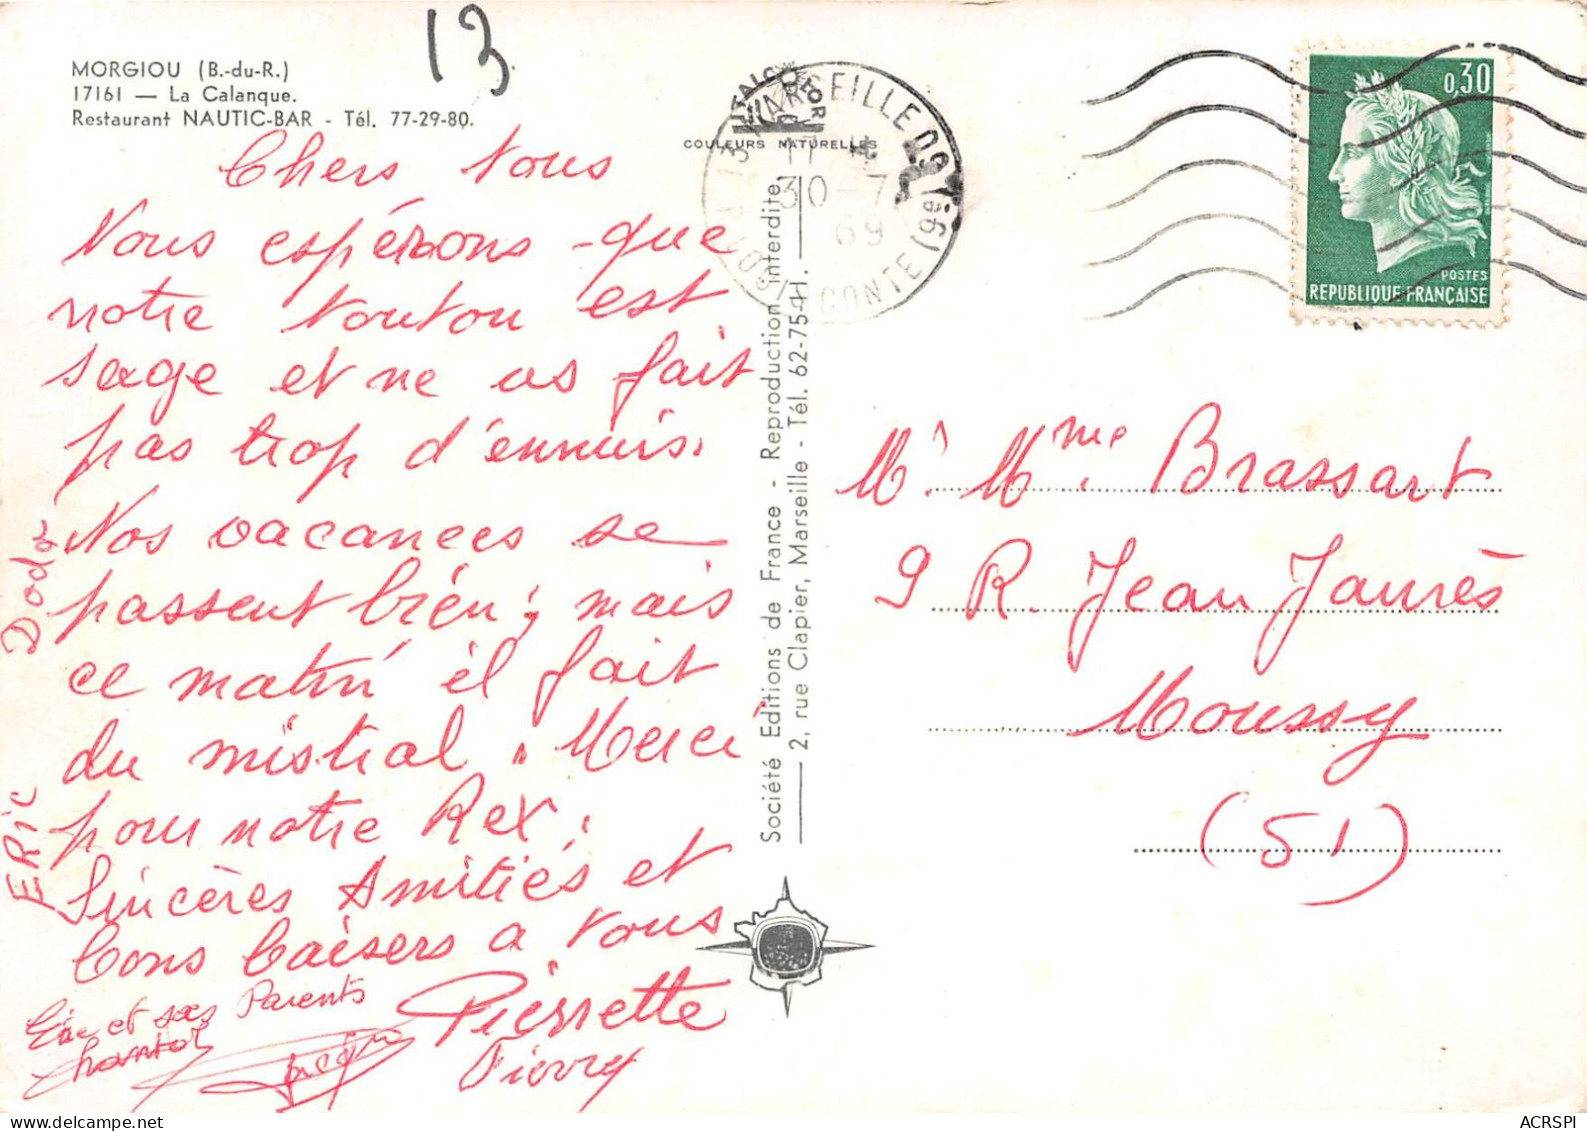 13
MORGIOU (B.-du-R.)
17161 — La Calanque.
Restaurant NAUTIC-BAR - Tél. 77-29-80.
Chers tous
Nous espérons que
notre toutou est
sage et ne vs fait
pas trop d'ennuis.
Nos vacances se
passent bien ; mais
ce matin il fait
du mistral. Merci
pour notre Rex.
Sincères Amitiés et
bons baisers a vous
Pierrette
Pierre
Eric et ses Parents
Dodo
ERic
COULEURS NATURELLES
MARSEILLE 09
17 H
30-7
69
CONTE (66)
Société Editions de France - Reproduction interdite
2, rue Clapier, Marseille - Tél. 62-75-41.
0,30
POSTES
REPUBLIQUE FRANÇAISE
Mr. Mme. Brassart
9 R. Jean Jaurès
Moussy
(51)
ACRSPI